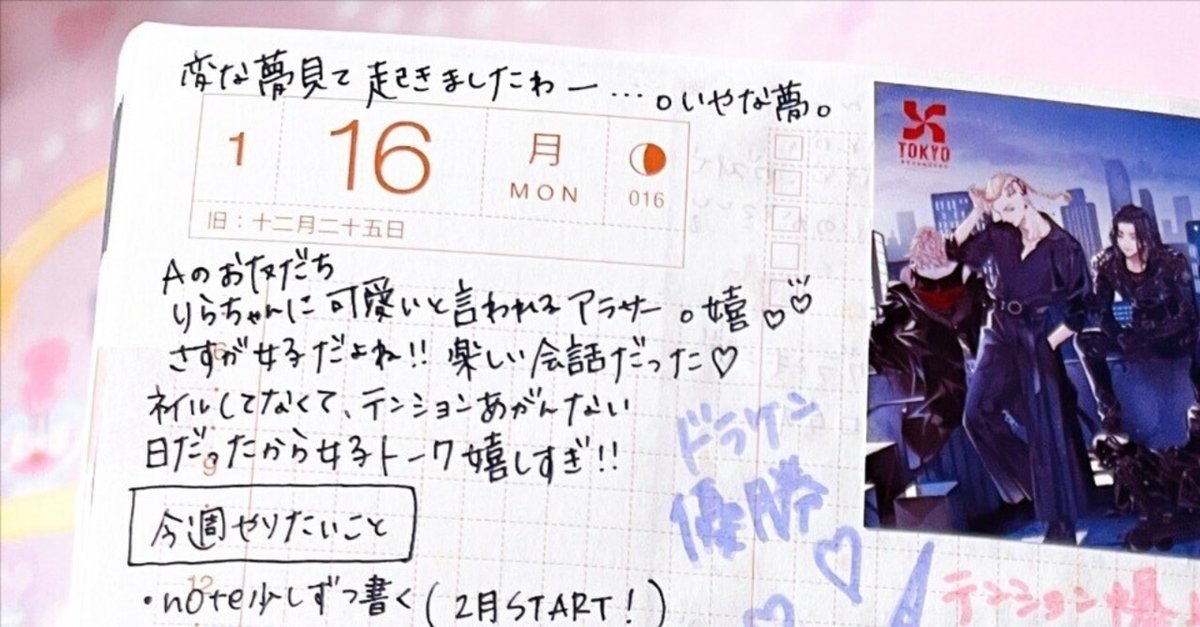 変な夢見て起きましたわー…。いやな夢。
1
16
月
MON
016
旧:十二月二十五日
Aのお友だち
りらちゃんに可愛いと言われるアラサー。嬉♡♡
さすが女子だよね!! 楽しい会話だった♡
ネイルしてなくて、テンションあがんない
日だったから女子トーク嬉しすぎ!!
今週やりたいこと
・note少しずつ書く(2月START!)
9
12
ドラケン
優勝
テンション爆
TOKYO